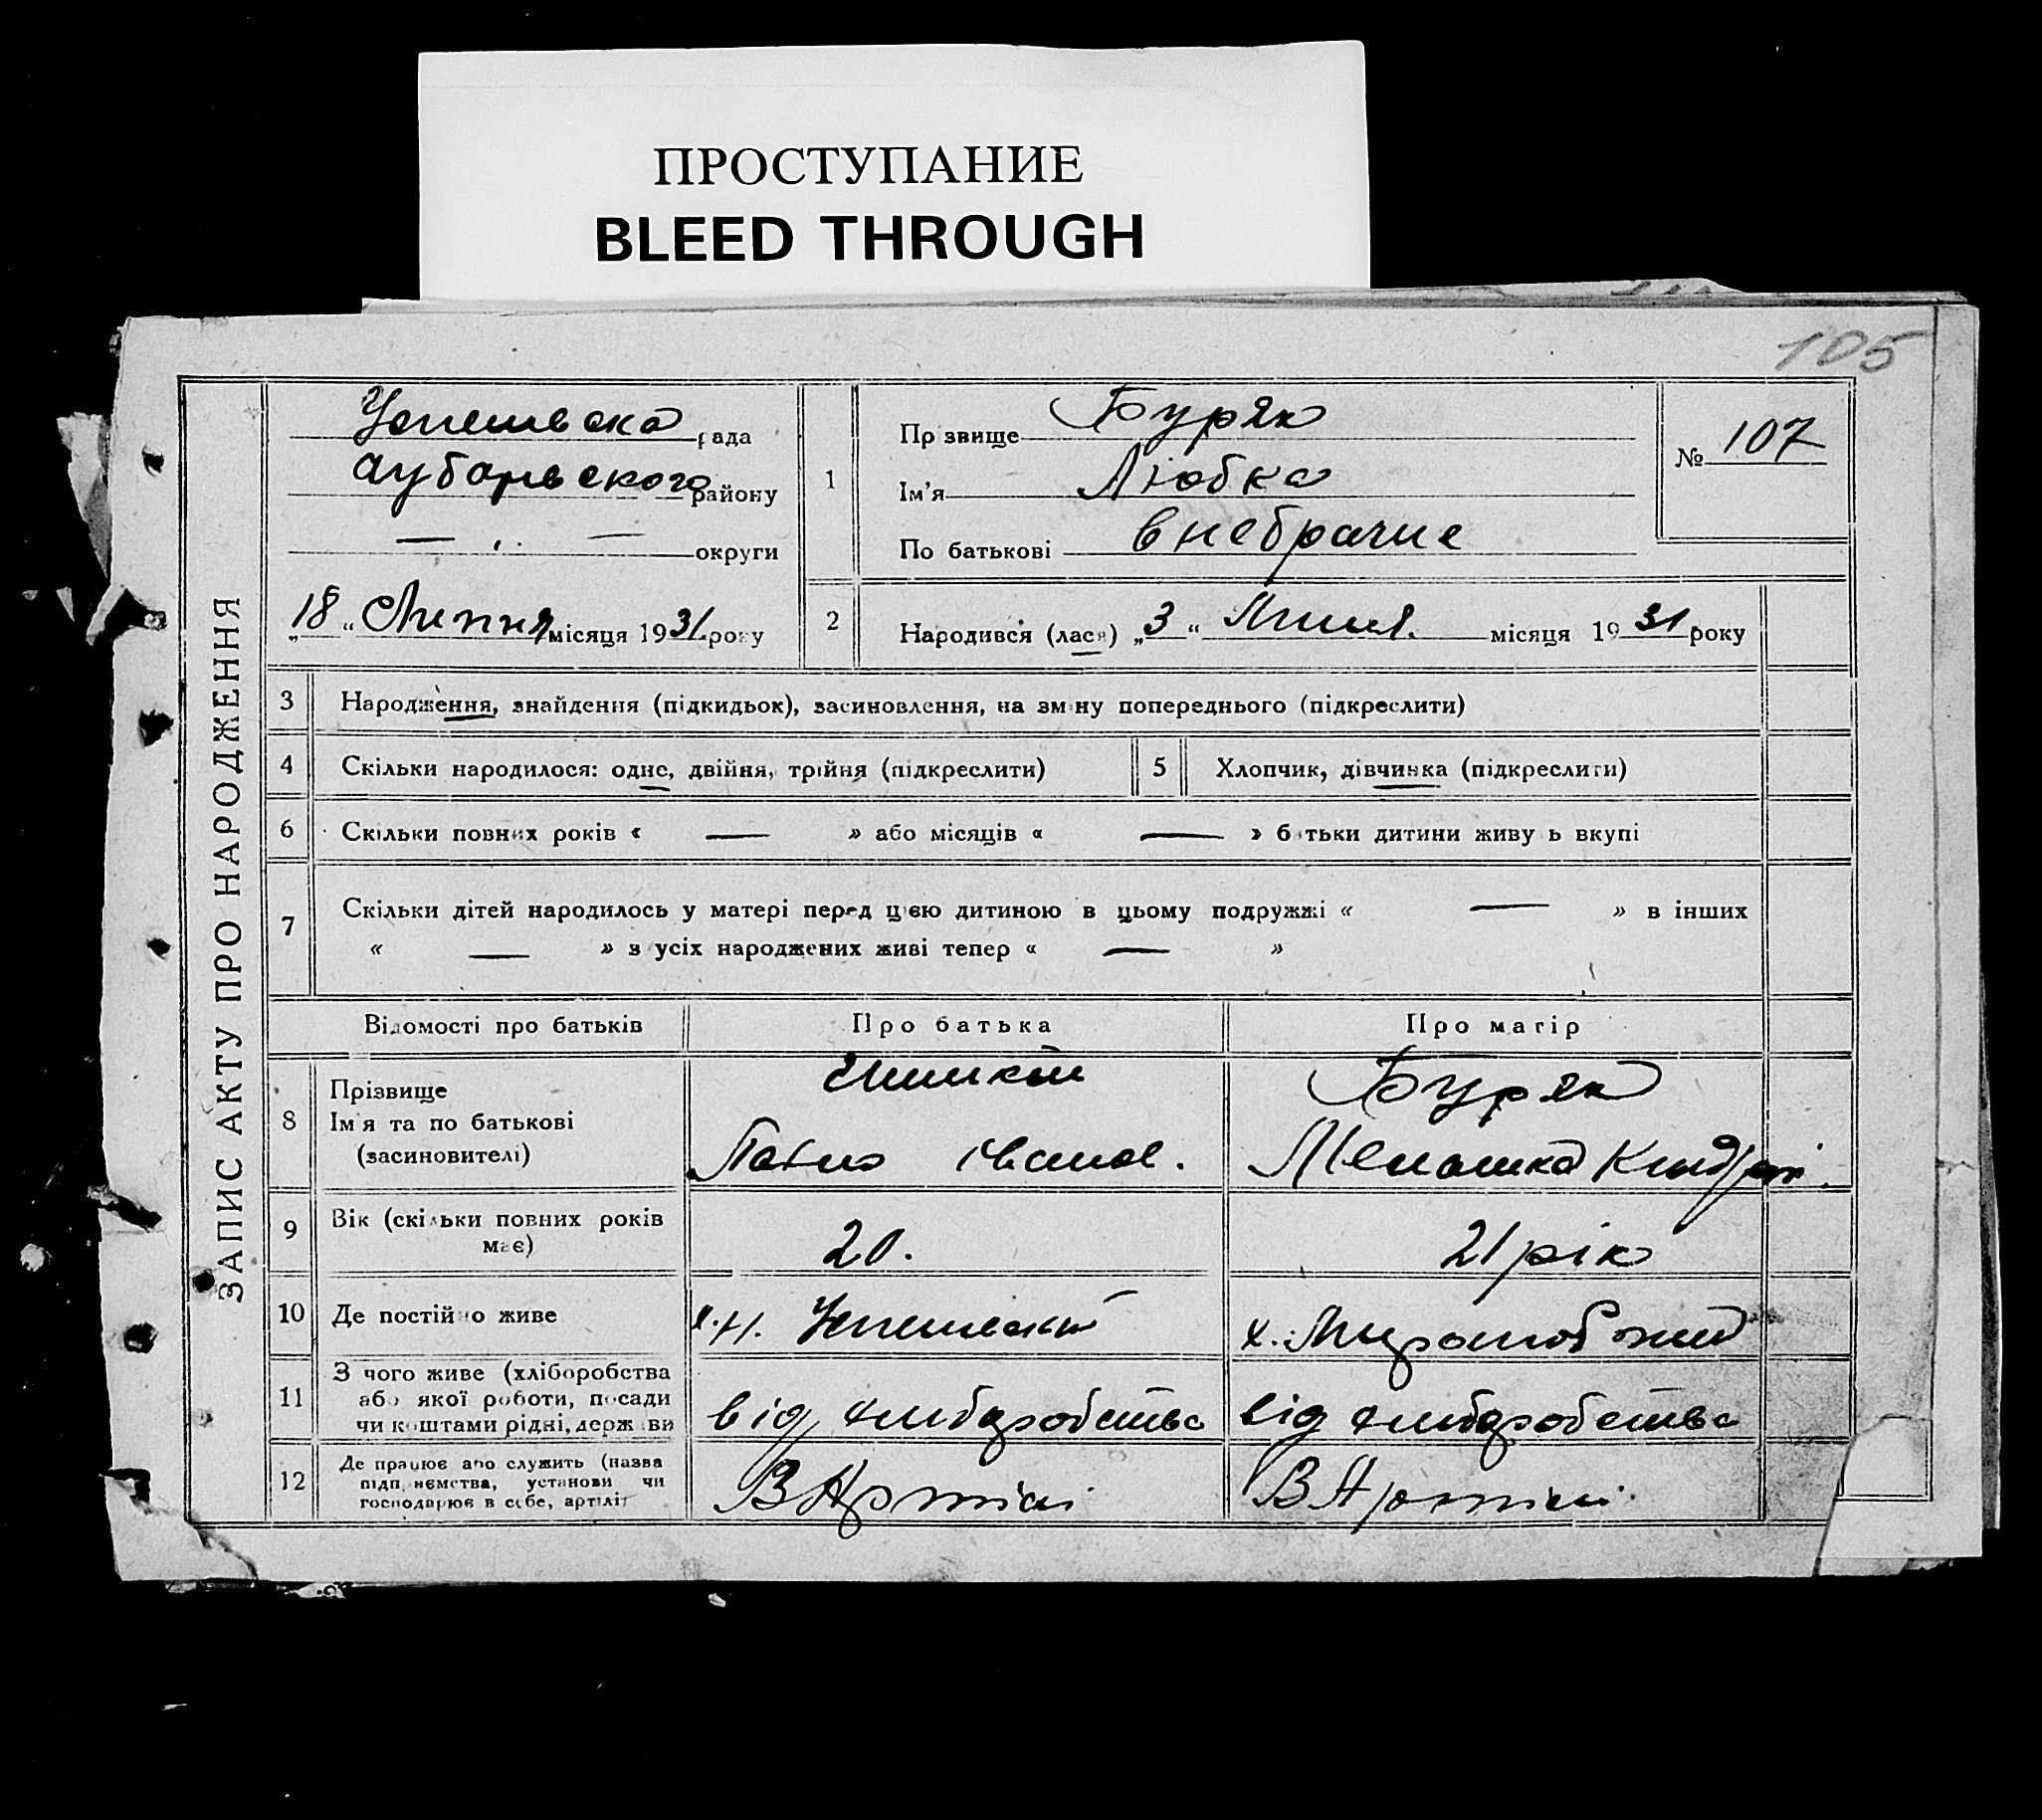 ПРОСТУПАНИЕ
BLEED THROUGH
105
ЗАПИС АКТУ ПРО НАРОДЖЕННЯ
рада
району
— —
округи
„18“ Липня місяця 1931 року
1
Прізвище Буряк
Ім'я Любка
По батькові внебрачне
№ 107
2
Народився (лася) „3“ Липня місяця 1931 року
3 Народження, знайдення (підкидьок), засиновлення, на зміну попереднього (підкреслити)
4 Скільки народилося: одне, двійня, трійня (підкреслити)
5 Хлопчик, дівчинка (підкреслити)
6 Скільки повних років « — » або місяців « — » батьки дитини живуть вкупі
7 Скільки дітей народилось у матері перед цією дитиною в цьому подружжі « — » в інших
« — » з усіх народжених живі тепер « — »
Відомості про батьків Про батька Про матір
8 Прізвище Буряк
Ім'я та по батькові
(засновителі) Павло Іванов. Мелашка
9 Вік (скільки повних років
має) 20. 21 рік
10 Де постійно живе х.
11 З чого живе (хліборобства
або якої роботи, посади
чи коштами рідні, держави від хліборобства від хліборобства
12 Де працює або служить (назва
підприємства, установи чи
господарює в себе, артілі) В Артілі В Артілі